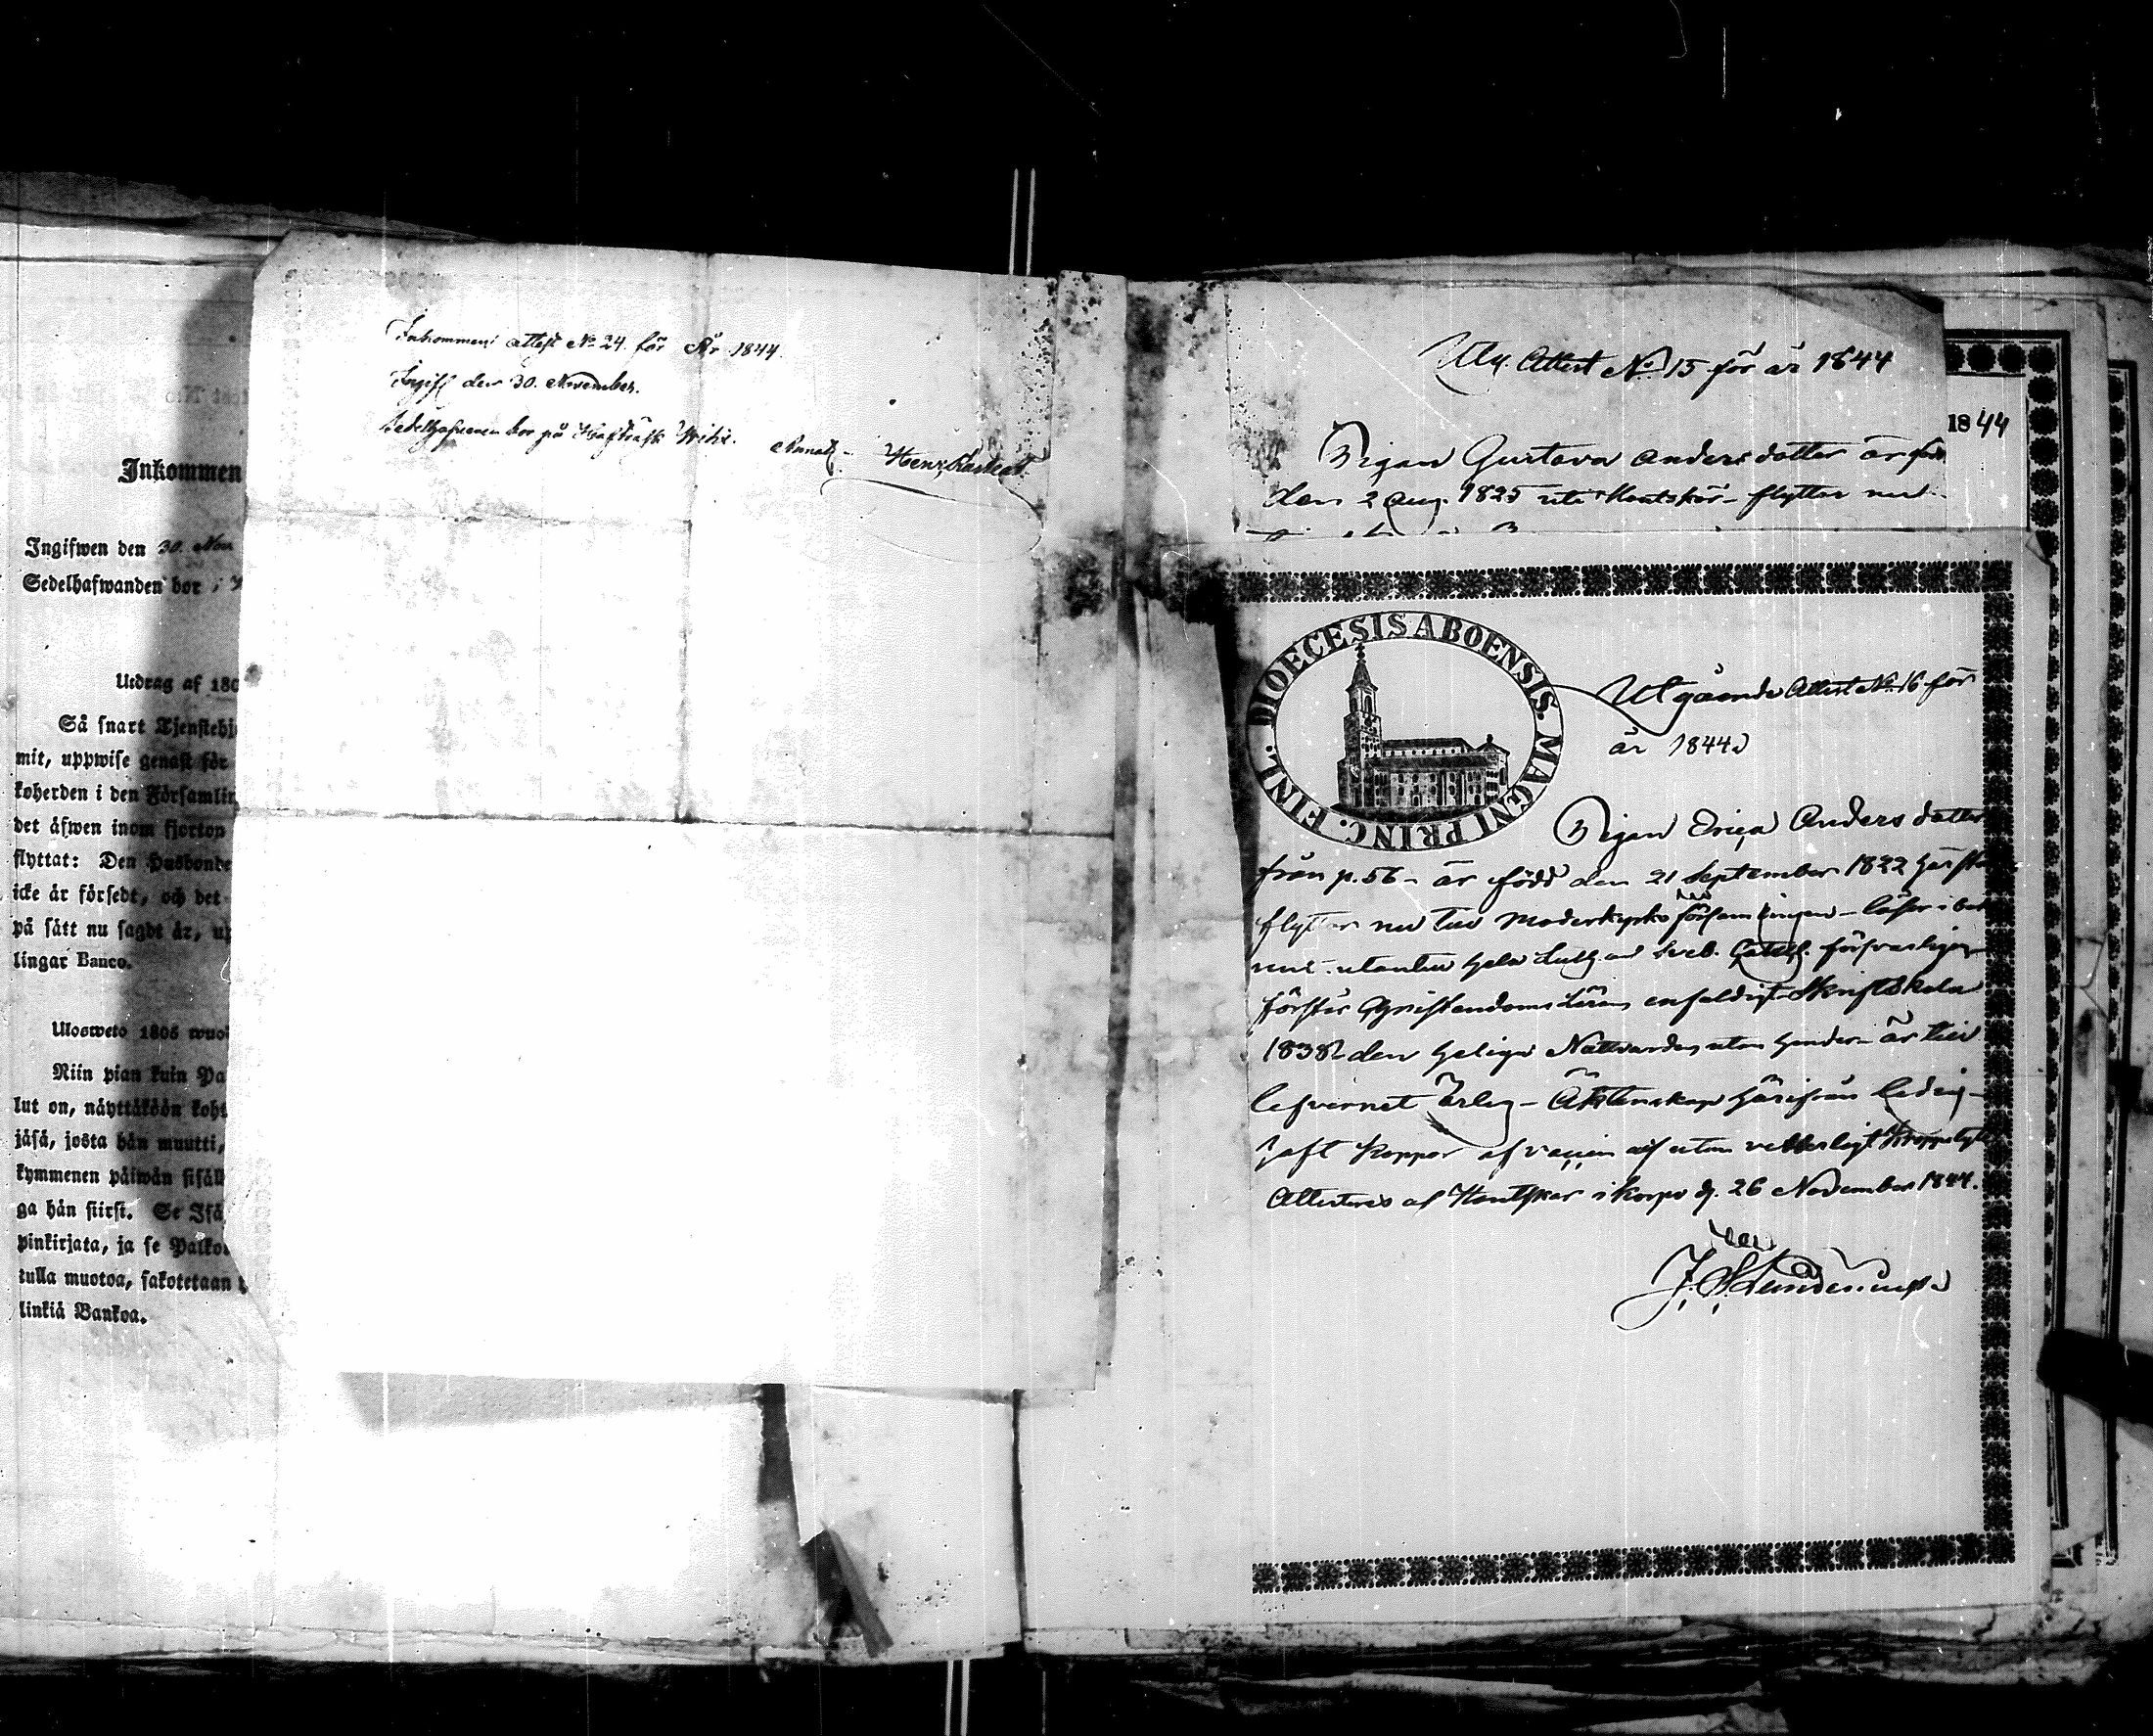 Inkommen
Ingifwen den 30. Nov
Sedelhafwanden bor i
Utdrag af 180
Så snart Tjenstehj
mit, uppwise genast för
koherden i den Församlin
det äfwen inom fjorton
flyttat: Den Husbonde
icke är försedt, och det
på sätt nu sagdt är, up
lingar Banco.
Ulosweto 1805 wuo
Niin pian kuin Pa
lut on, näyttäköön koht
jäsä, josta hän muutti,
kymmenen päiwän sisäll
ga hän siirsi. Se Isä
pinkirjata, ja se Palko
tulla muotoa, sakotetaan
linkiä Bankoa.
Inkommen attest No 24. för År 1844.
Ingift den 30. November.
Sedelhafvaren bor på
Utg. Attest No 15 för år 1844
1844
Pigan Gustava Anders dotter är född
den 2 Aug. 1825 uti Houtskär flyttar nu
DIOECESIS ABOENSIS. MAGNI PRINC. FINL.
Utgående Attest No 16 för
år 1844
Pigan Erica Anders dotter
från p. 56 - är född den 21 September 1822 härst
flyttar nu till Moderkyrko församlingen - läser i bok
utantill hela Luth. och Sveb. Catech. försvarligen
förstår Christendoms läran enfaldigt Skriftskola
1838 den heliga Nattvarden utan hinder - är till
lefvernet ärlig - Äktenskap härifrån ledig -
haft koppor af vaccin utan Kroppslyte
Attesteras af Houtskär i Korpo d. 26 November 1844.